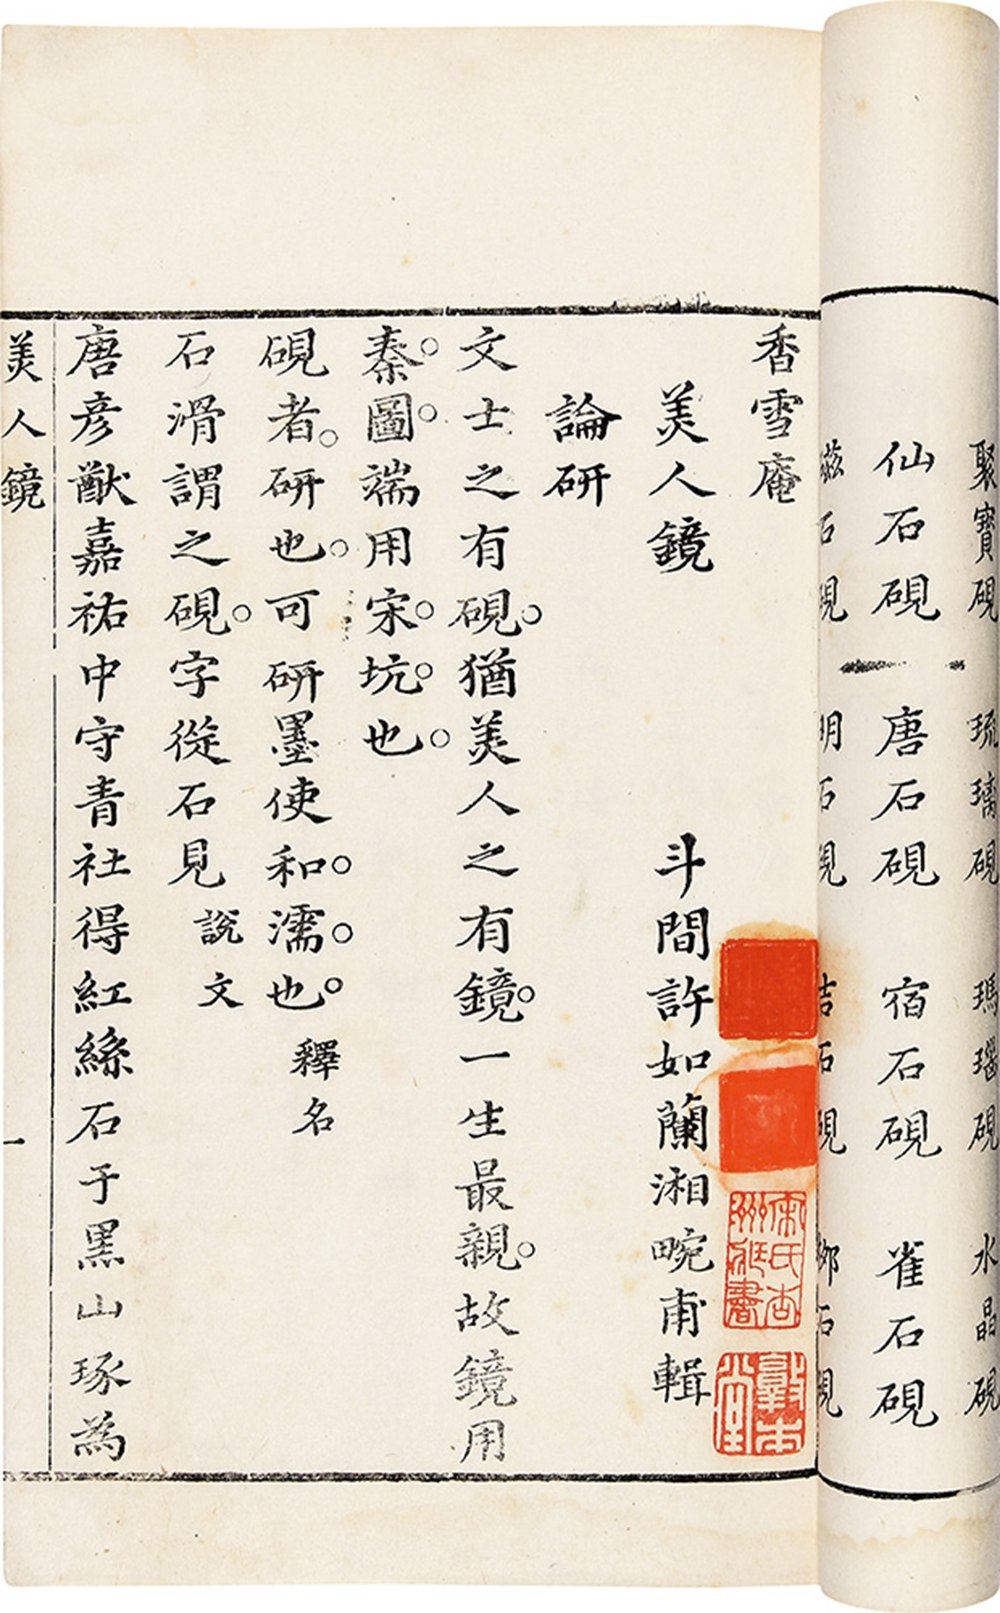 聚寶硯 琉璃硯 瑪瑙硯 水晶硯
仙石硯 唐石硯 宿石硯 雀石硯
磁石硯 明石硯 吉石硯 石硯
香雪庵
美人鏡 斗間許如蘭湘畹甫輯
論研
文士之有硯。猶美人之有鏡。一生最親。故鏡用
秦。圖。端用宋。坑。也。
硯者。研也。可研墨使和。濡。也。釋名
石滑謂之硯。字從石見 說文
唐彥猷嘉祐中守青社得紅絲石于黑山琢為
美人鏡 一